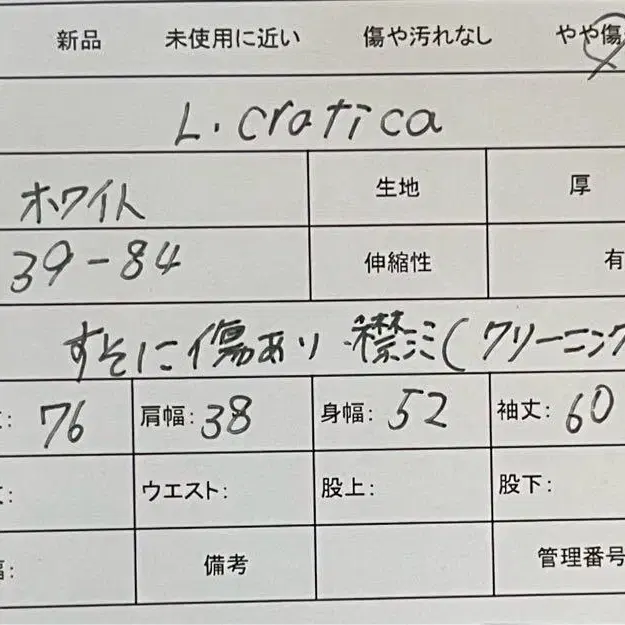 新品 未使用に近い 傷や汚れなし やや傷
L.cratica
ホワイト 生地 厚
39-84 伸縮性 有
すそに傷あり 襟シミ(クリーニング
: 76 肩幅:38 身幅:52 袖丈:60
: ウエスト: 股上: 股下:
幅: 備考 管理番号